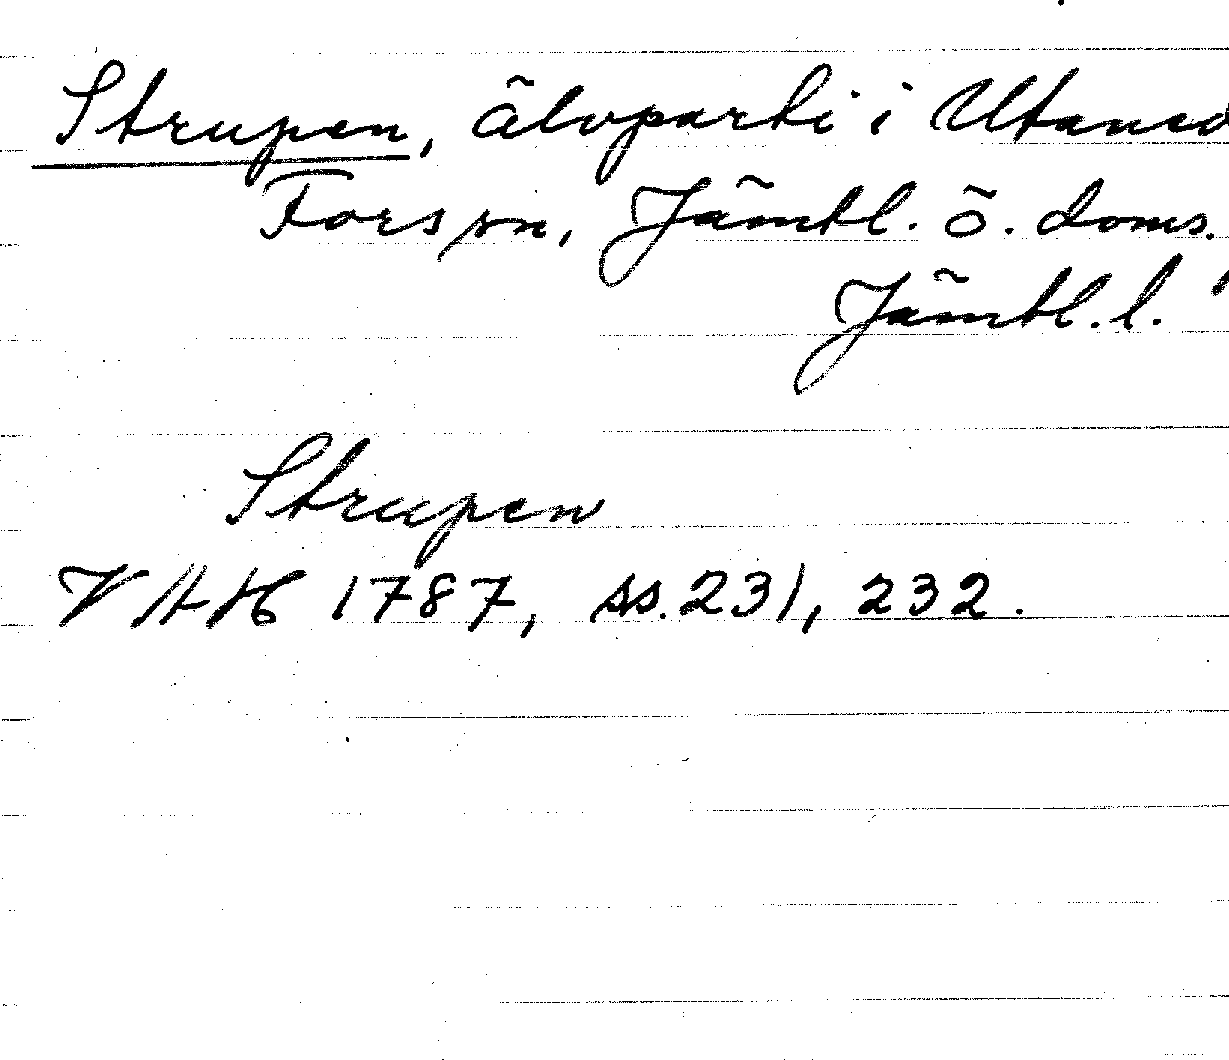 Strupen, älvparti i Utaned
Fors sn, Jämtl. ö. doms.
Jämtl. l.
Strupen
VAH 1787, ss. 231, 232.